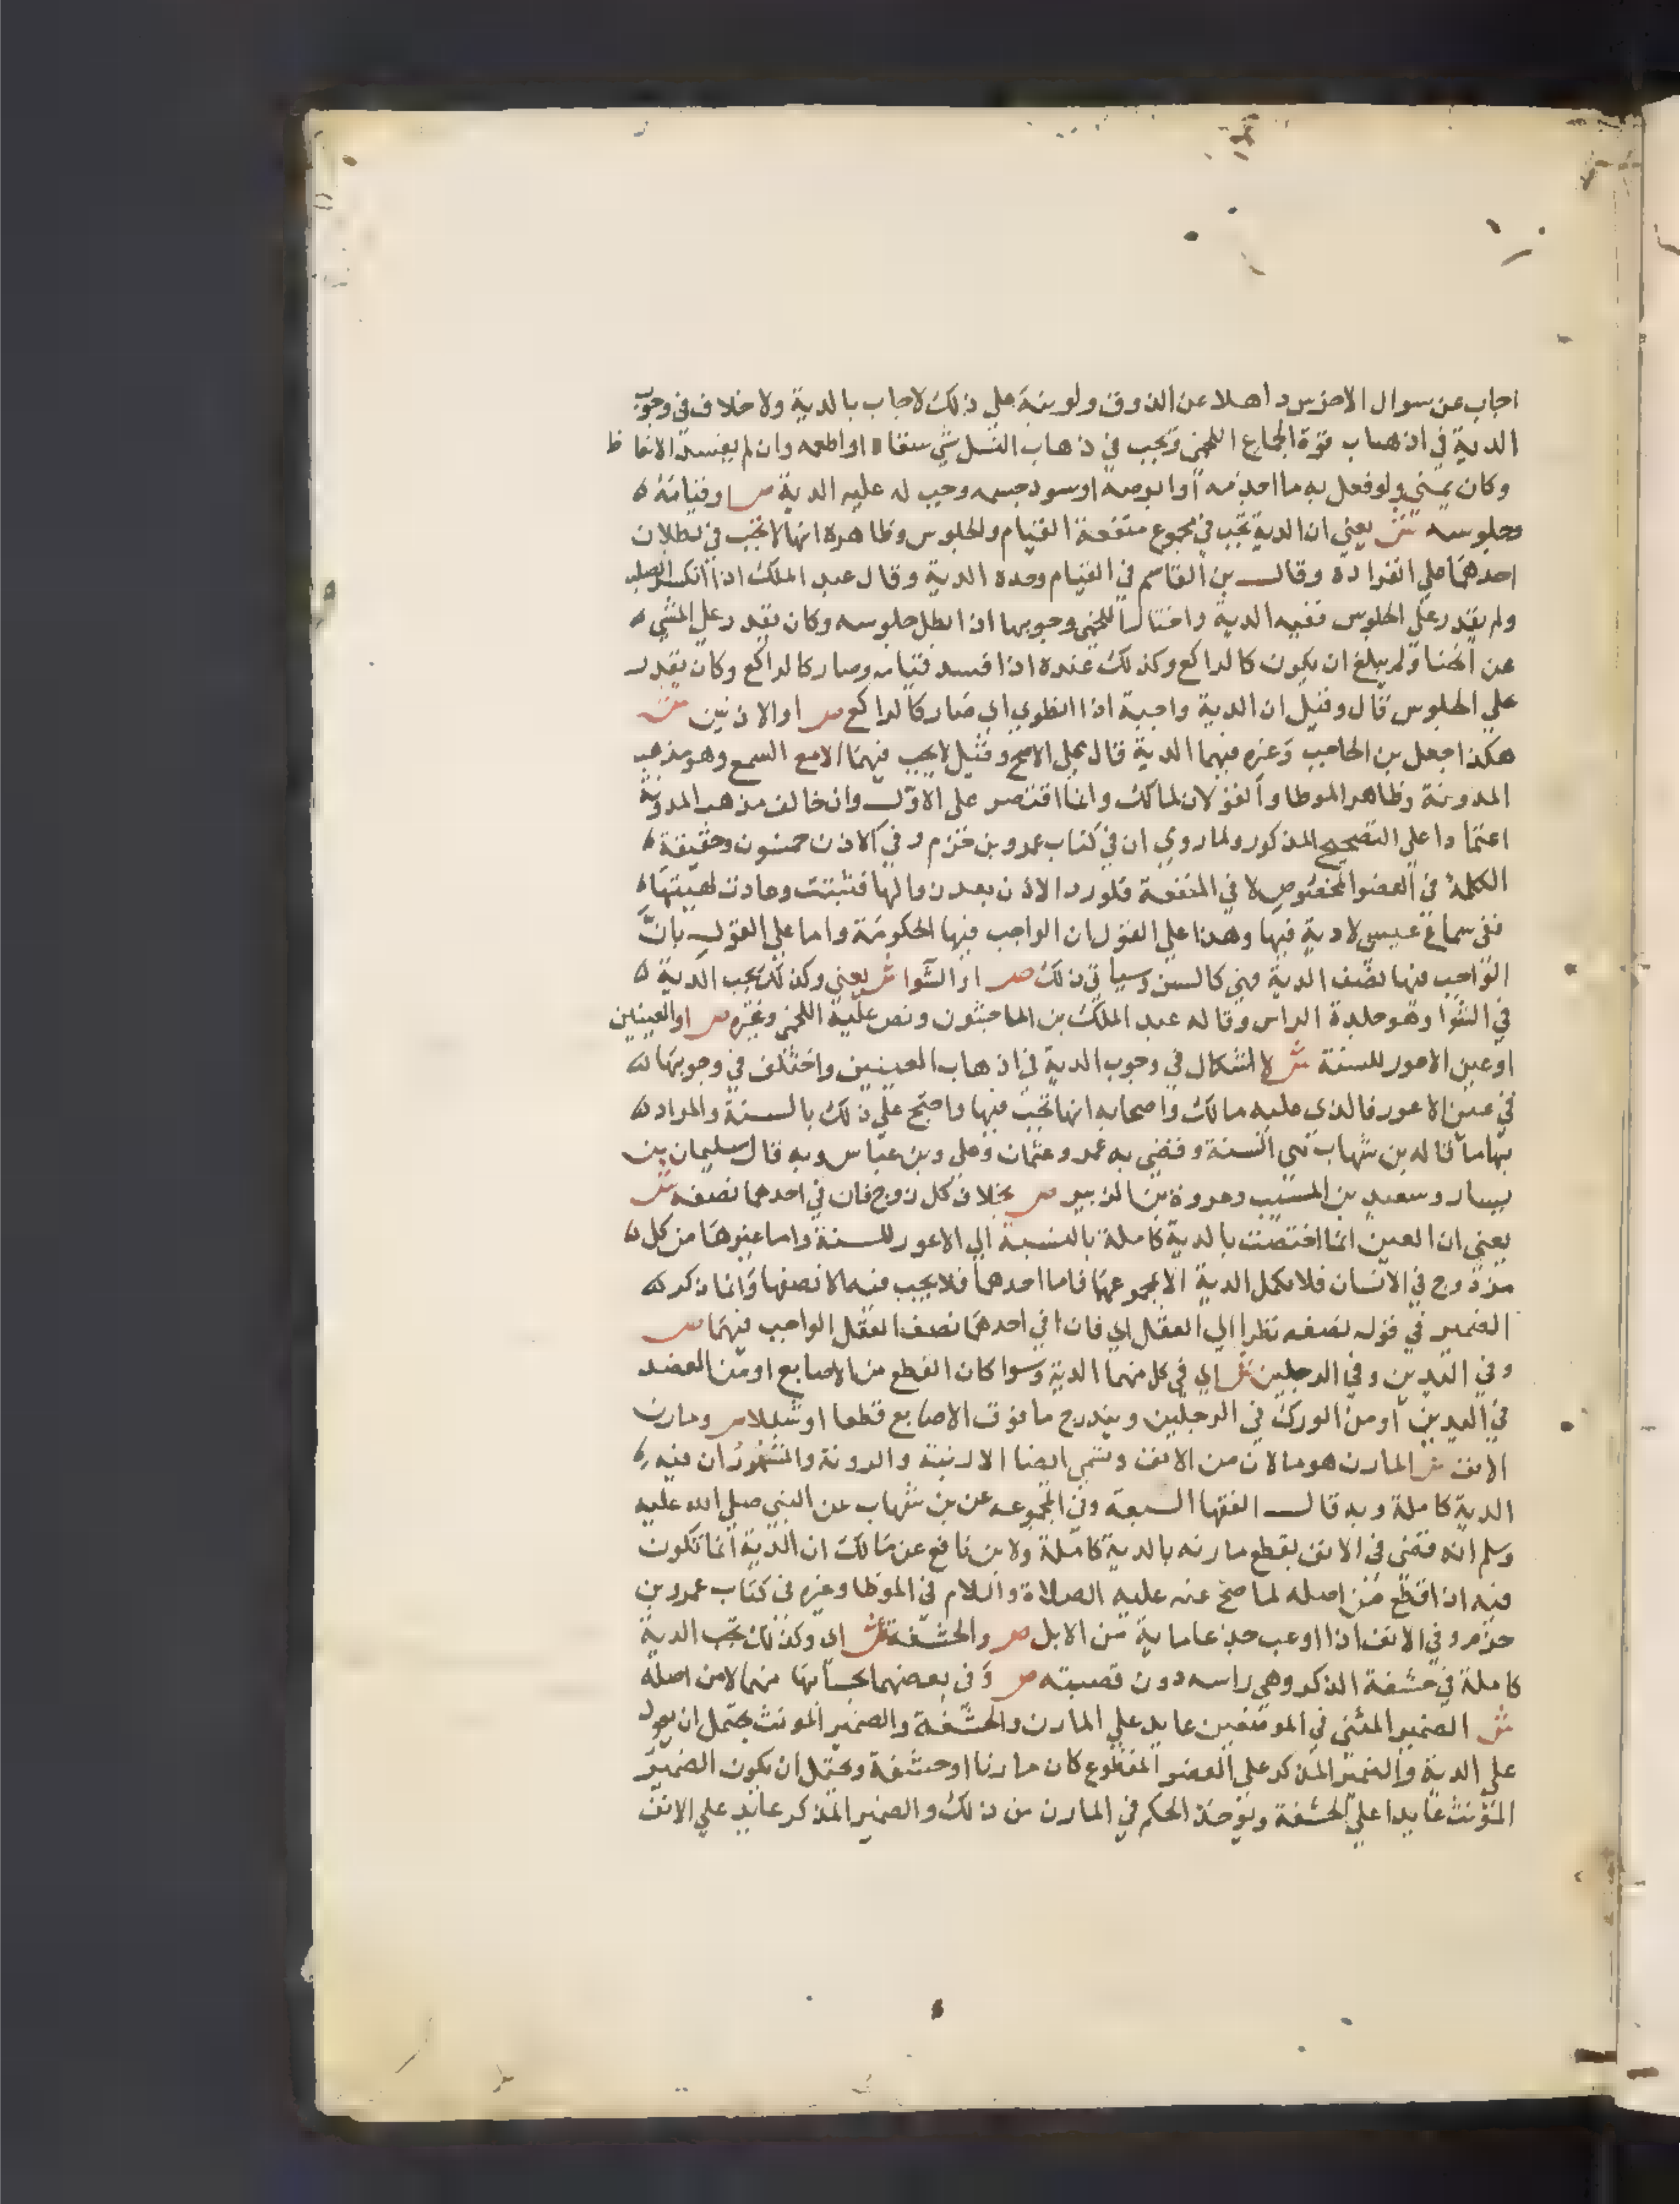 اجاب عن سوال الاخرس داهلا عن الذوق ولو بنه علي ذلك لاجاب بالدية ولا خلاف في وجوب
الدية في اذهاب قوة الجماع اللخمي وتجب في ذهاب النسل بشي سقاه او اطعمه وان لم يفسد الانعاظ
وكان يمني ولو فعل به ما اجذمه او ابرصه او سود جسمه وجب له عليه الدية ص او قيامه
وجلوسه ش يعني ان الدية تجب في مجموع منفعة القيام والجلوس وظاهره انها لا تجب في بطلان
احدهما علي انفراده وقال بن القاسم في القيام وحده الدية وقال عبد الملك اذا انكسر الصلب
ولم يقدر علي الجلوس ففيه الدية واختار اللخمي وجوبها اذا ابطل جلوسه وكان يقدر علي المشي
عن انحناء ولم يبلغ ان يكون كالراكع وكذلك عنده اذا افسد قيامه وصار كالراكع وكان يقدر
علي الجلوس قال وقيل ان الدية واجبة اذا انطوي اي صار كالراكع ص او الاذنين ش
هكذا جعل بن الحاجب وغيره فيهما الدية قال علي الاصح وقيل لا يجب فيهما الا مع السمع وهو مذهب
المدونة وظاهر الموطا والقولان لمالك وانما اقتصر علي الاول وان خالف مذهب المدونة
اعتمادا علي التصحيح المذكور ولما روي ان في كتاب عمرو بن حزم وفي الاذن خمسون وحقيقة
الكلمة في العضو المخصوص لا في المنفعة فلو رد الاذن بعد زوالها فثبتت وعادت لهيئتها
ففي سماع عيسي لا دية فيها وهذا علي القول ان الواجب فيها الحكومة واما علي القول بان
الواجب فيها نصف الدية فهي كالسن وسياتي ذلك ص او الشوا ش يعني وكذلك تجب الدية
في الشوا وهو جلدة الراس وقاله عبد الملك بن الماجشون ونص عليه اللخمي وغيره ص او العينين
او عين الاعور للسنة ش لا اشكال في وجوب الدية في اذهاب العينين واختلف في وجوبها
في عين الاعور فالذي عليه مالك واصحابه انها تجب فيها واحتج علي ذلك بالسنة والمراد
بها ما قاله بن شهاب هي السنة وقضي به عمر وعثمان وعلي وبن عباس وبه قال سليمان بن
يسار وسعيد بن المسيب وعروة بن الزبير ص بخلاف كل زوج فان في احدهما نصفه ش
يعني ان العين انما اختصت بالدية كاملة بالنسبة الي الاعور للسنة واما غيرها من كل
مزدوج في الانسان فلا تكمل الدية الا بمجموعهما فاما احدهما فلا يجب فيه الا نصفها وانما ذكر
الضمير في قوله نصفه نظرا الي العقل اي فان في احدهما نصف العقل الواجب فيهما ص
وفي اليدين وفي الرجلين ش اي في كل منهما الدية وسوا كان القطع من الاصابع او من العضد
في اليدين او من الورك في الرجلين ويندرج ما فوق الاصابع قطعا او شللا ص ومارن
الانف ش المارن هو ما لان من الانف وتسمي ايضا الارنبة والروثة والمشهور ان فيه
الدية كاملة وبه قال الفقها السبعة وفي المجموعه عن بن شهاب عن النبي صلي الله عليه
وسلم انه قضي في الانف بقطع مارنه بالدية كاملة ولابن نافع عن مالك ان الدية انما تكون
فيه اذا قطع من اصله لما صح عنه عليه الصلاة والسلام في الموطا وغيره في كتاب عمرو بن
حزم وفي الانف اذا اوعب جذعا ماية من الابل ص والحشفة ش اي وكذلك تجب الدية
كاملة في حشفة الذكر وهي راسه دون قصبته ص وفي بعضهما بحسابها منهما لا من اصله
ش الضمير المثني في الموضعين عايد علي المارن والحشفة والضمير المونث يحتمل ان يعود
علي الدية والضمير المذكر علي العضو المقطوع كان مارنا او حشفة ويحتمل ان يكون الضمير
المؤنث عايدا علي الحشفة ويؤخذ الحكم في المارن من ذلك والضمير المذكر عايد علي الانف